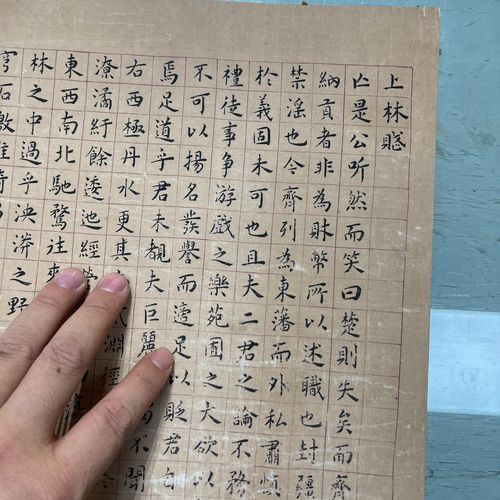 上林賦
亡是公听然而笑曰楚則失矣而齊
納貢者非為財幣所以述職也封疆
禁淫也今齊列為東藩而外私肅慎
於義固未可也且夫二君之論不務
禮徒事争游戲之樂苑囿之大欲以
不可以揚名發譽而適足以貶君自
焉足道乎君未覩夫巨麗不聞
右西極丹水更其淵徑
潦潏紆餘逶迤經營
東西南北馳騖往來
林之中過乎泱莽之野
穹石激堆埼